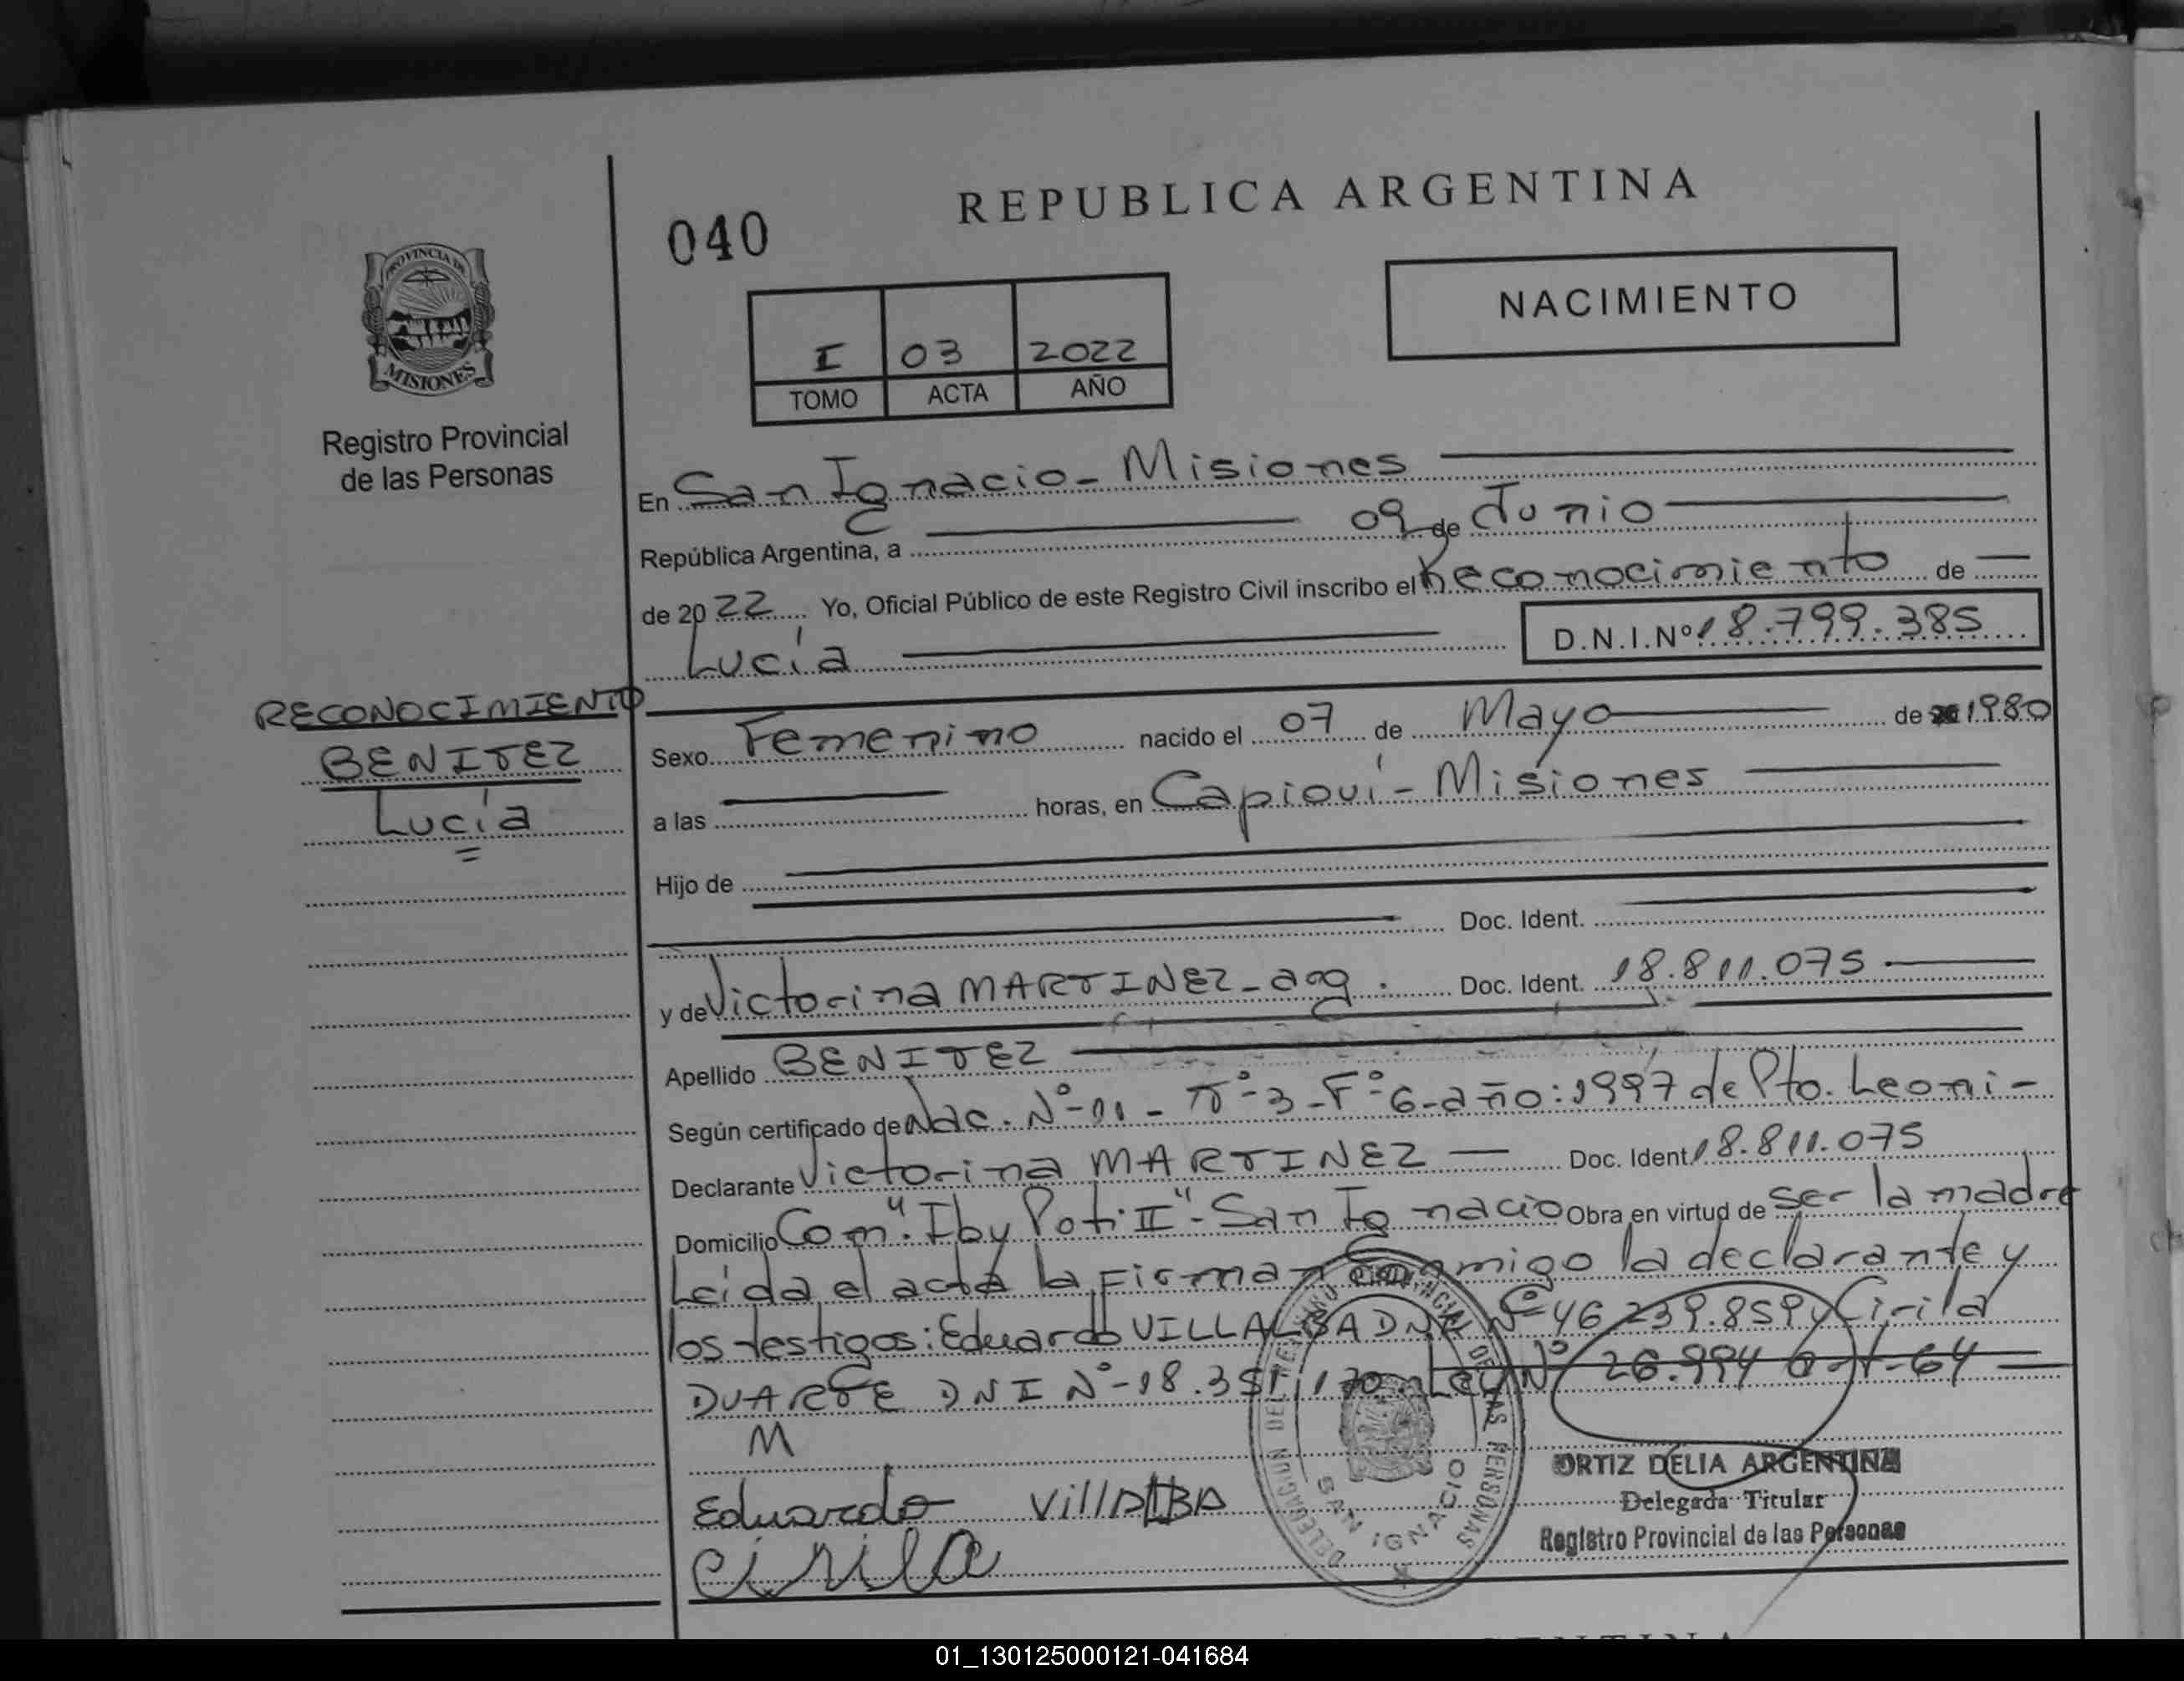 REPUBLICA ARGENTINA
040
NACIMIENTO
PROVINCIA DE
MISIONES
I 03 2022
TOMO ACTA AÑO
Registro Provincial
de las Personas
En San Ignacio - Misiones
República Argentina, a 09 de Junio
de 2022 Yo, Oficial Público de este Registro Civil inscribo el Reconocimiento de
Lucía D.N.I.Nº 18.799.385
RECONOCIMIENTO
BENITEZ
Lucía
Sexo Femenino nacido el 07 de Mayo de 1980
a las horas, en Capioví - Misiones
Hijo de
Doc. Ident.
y de Victorina MARTINEZ - arg. Doc. Ident. 18.811.075
Apellido BENITEZ
Según certificado de Nac. Nº-01 - Tº-3 - Fº-6 - año: 1997 de Pto. Leoni -
Declarante Victorina MARTINEZ Doc. Ident. 18.811.075
Domicilio Com. "Iby Poti II" - San Ignacio Obra en virtud de ser la madre
Leída el acta la Firman Conmigo la declarante y
los testigos: Eduardo VILLALBA DNI Nº 46.239.859 y Cirila
DUARTE DNI Nº-18.351.170. Ley Nº 26.994 art-64
M
Eduardo VillALBA
cirila
SAN IGNACIO
ORTIZ DELIA ARGENTINA
Delegada Titular
Registro Provincial de las Personas
01_130125000121-041684